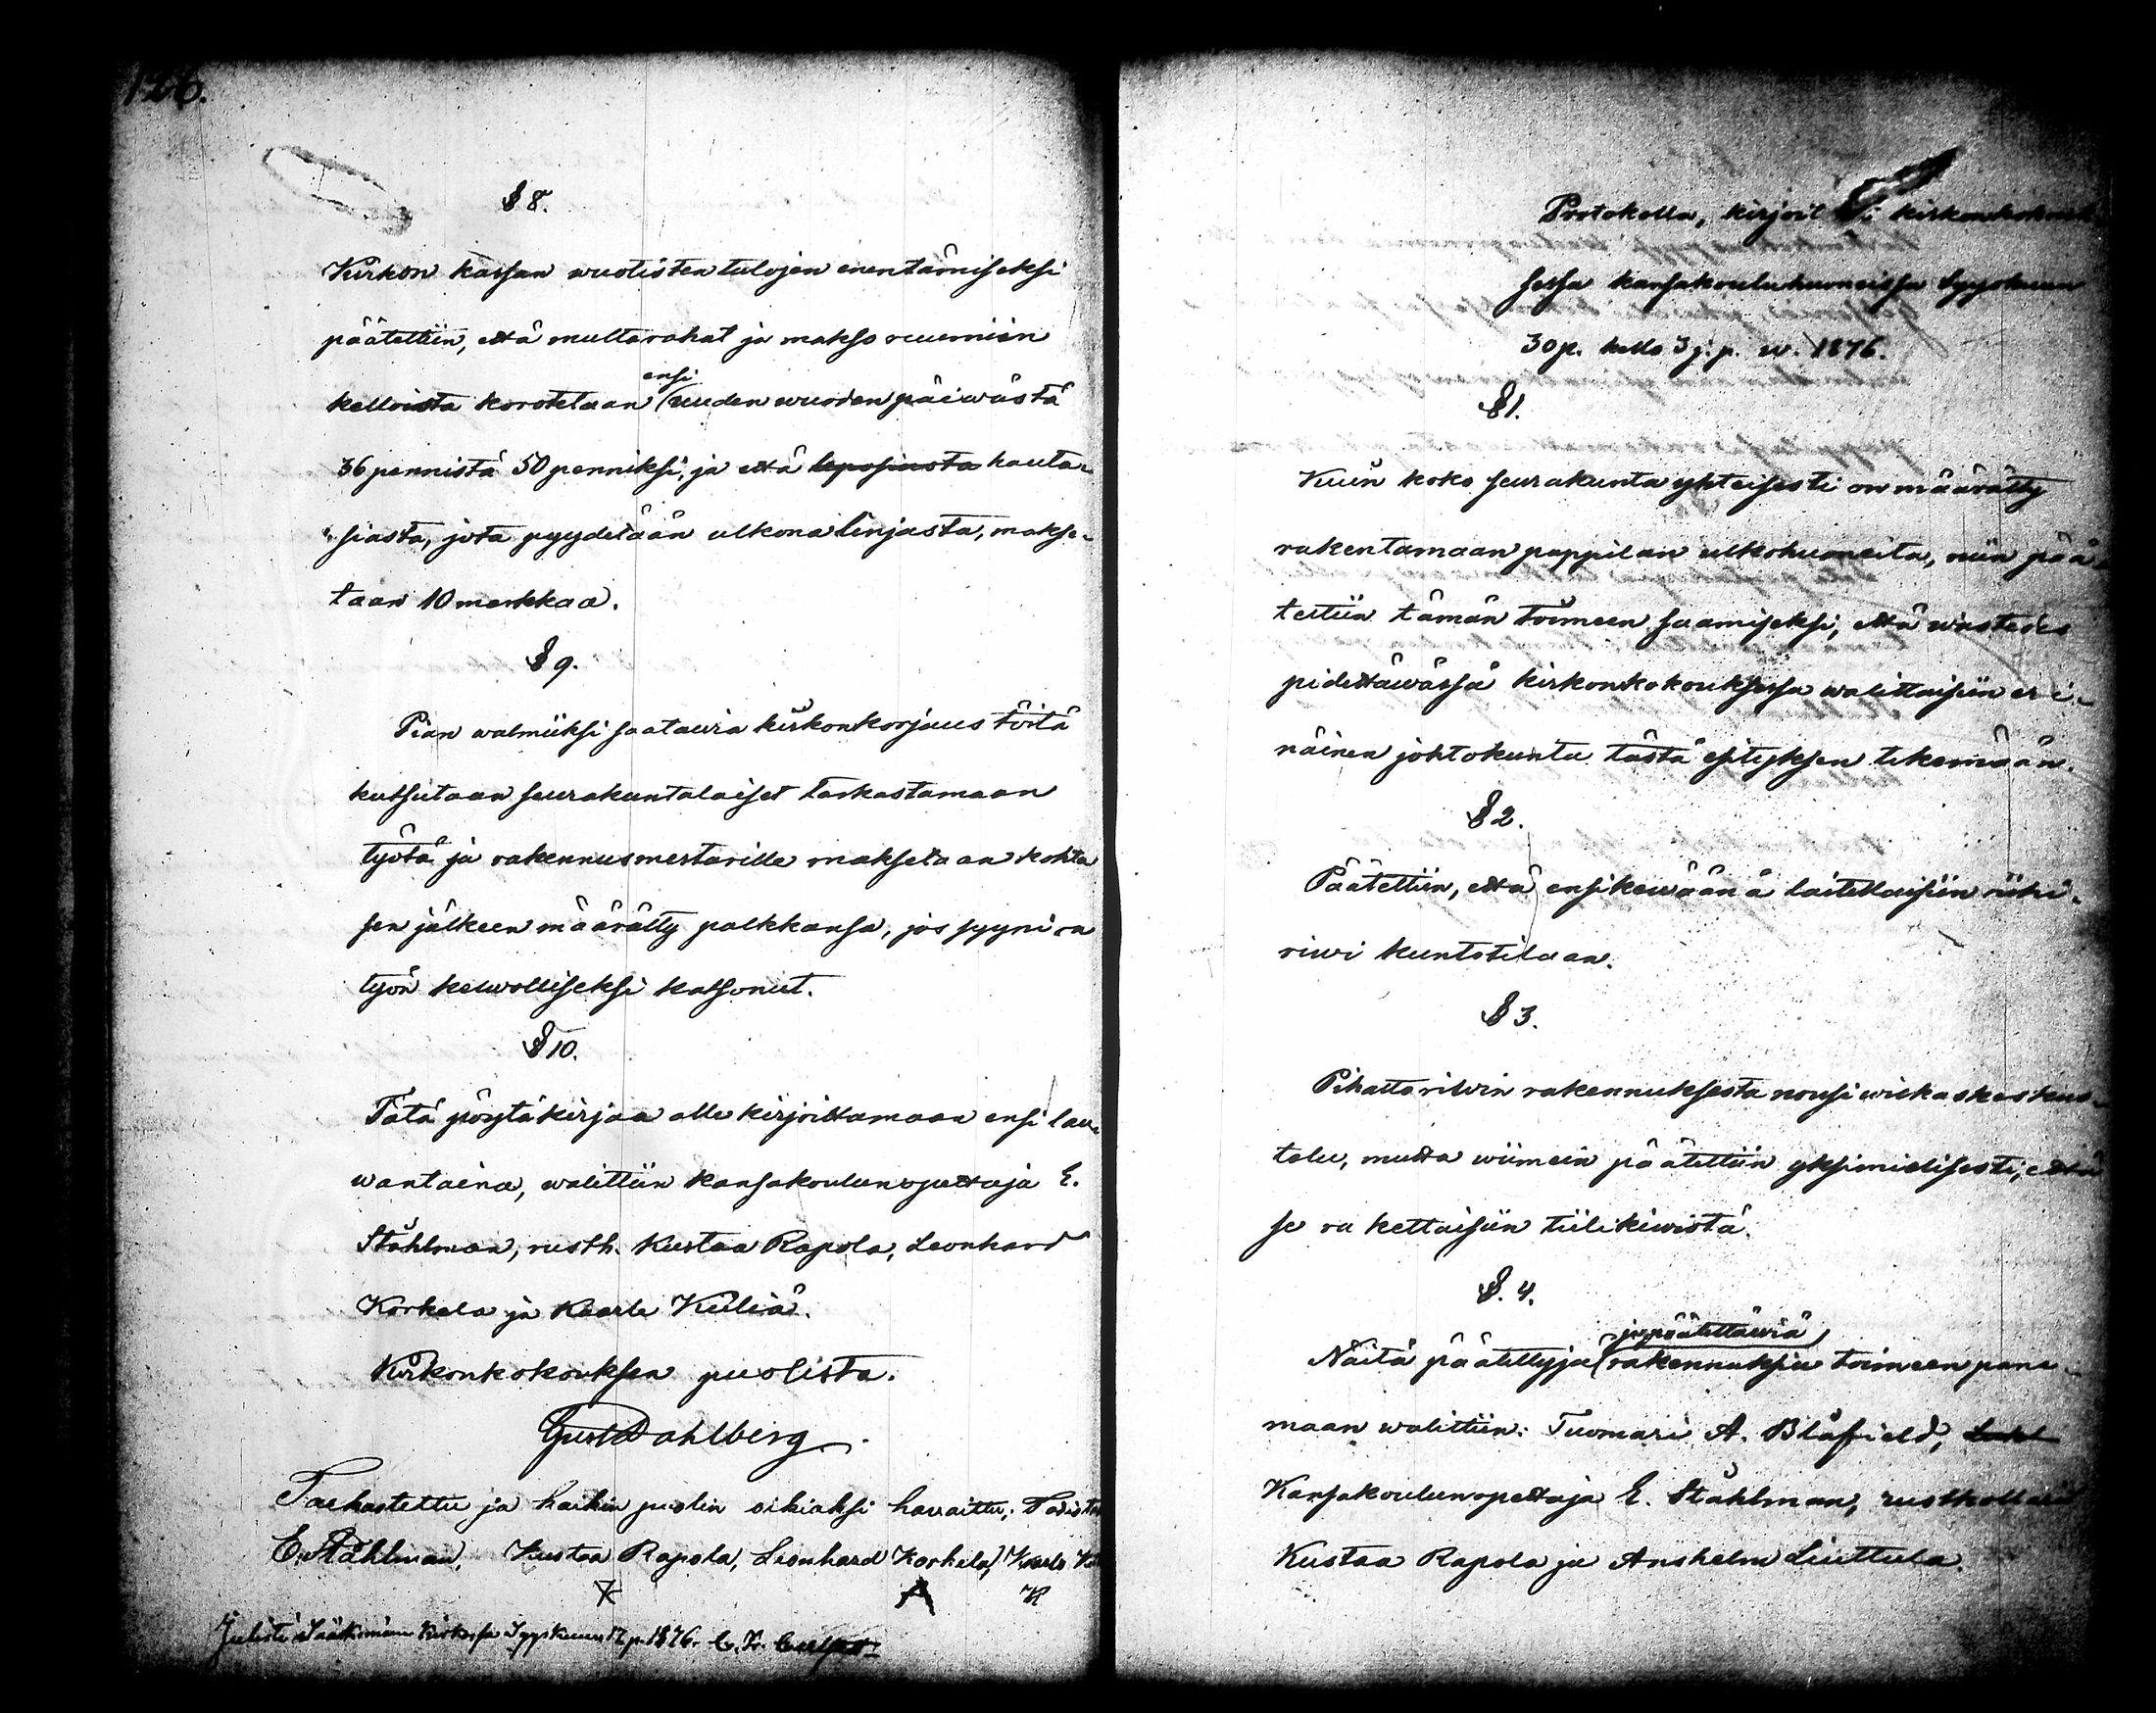 126.
§ 8.
Kirkon kassan wuotisten tulojen enentämiseksi
päätettiin, että multarahat ja makso ruumiin
ensi
kelloista korotetaan uuden wuoden päiwästä
36 pennistä 50 penniksi, ja että leposiasta hauta-
siasta, jota pyydetään ulkona linjasta, makse-
taan 10 markkaa.
§ 9.
Pian walmiiksi saatawia kirkonkorjaus töitä
kutsutaan seurakuntalaiset tarkastamaan
työtä ja rakennusmestarille maksetaan kohta
sen jälkeen määrätty palkkansa, jos syyni on
työn kelwolliseksi katsonut.
§ 10.
Tätä pöytäkirjaa alle kirjoittamaan ensi lau-
wantaina, walittiin kansakoulunopettaja E.
Ståhlman, rusth. Kustaa Rapola, Leonhard
Korkela ja Kaarle Kuliä.
Kirkonkokouksen puolista.
Gust Dahlberg
Tarkastettu ja kaikin puolin oikiaksi hawaittu; Todista
E. Ståhlman, Kustaa Rapola, Leonhard Korkela, Kaarlo
Julisti Sääksmäen kirkossa Syyskuun 17 p. 1876.
Protokolla, kirjoit i kirkonkokouk-
sessa kansakouluhuoneissa Syyskuun
30 p. kello 3 j. p. w. 1876.
§ 1.
Kuin koko seurakunta yhteisesti on määrätty
rakentamaan pappilan ulkohuoneita, niin pää-
tettiin tämän toimeen saamiseksi, että wastedes
pidettäwässä kirkonkokouksessa walittaisiin eri-
näinen johtokunta tästä esityksen tekemään.
§ 2.
Päätettiin, että ensikewäänä laitettaisiin riihi-
riwi kuntotilaan.
§ 3.
Pihattoriwin rakennuksesta nousi wilkas keskus-
telu, mutta wiimein päätettiin yksimielisesti, että
se rakettaisiin tiilikiwistä.
§. 4.
ja päätettäwiä
Näitä päätettyjä rakennuksia toimeen pane-
maan walittiin: Tuomari A. Blåfield,
Kansakoulunopettaja E. Ståhlman, rusthollari
Kustaa Rapola ja Anshelm Liuttula.